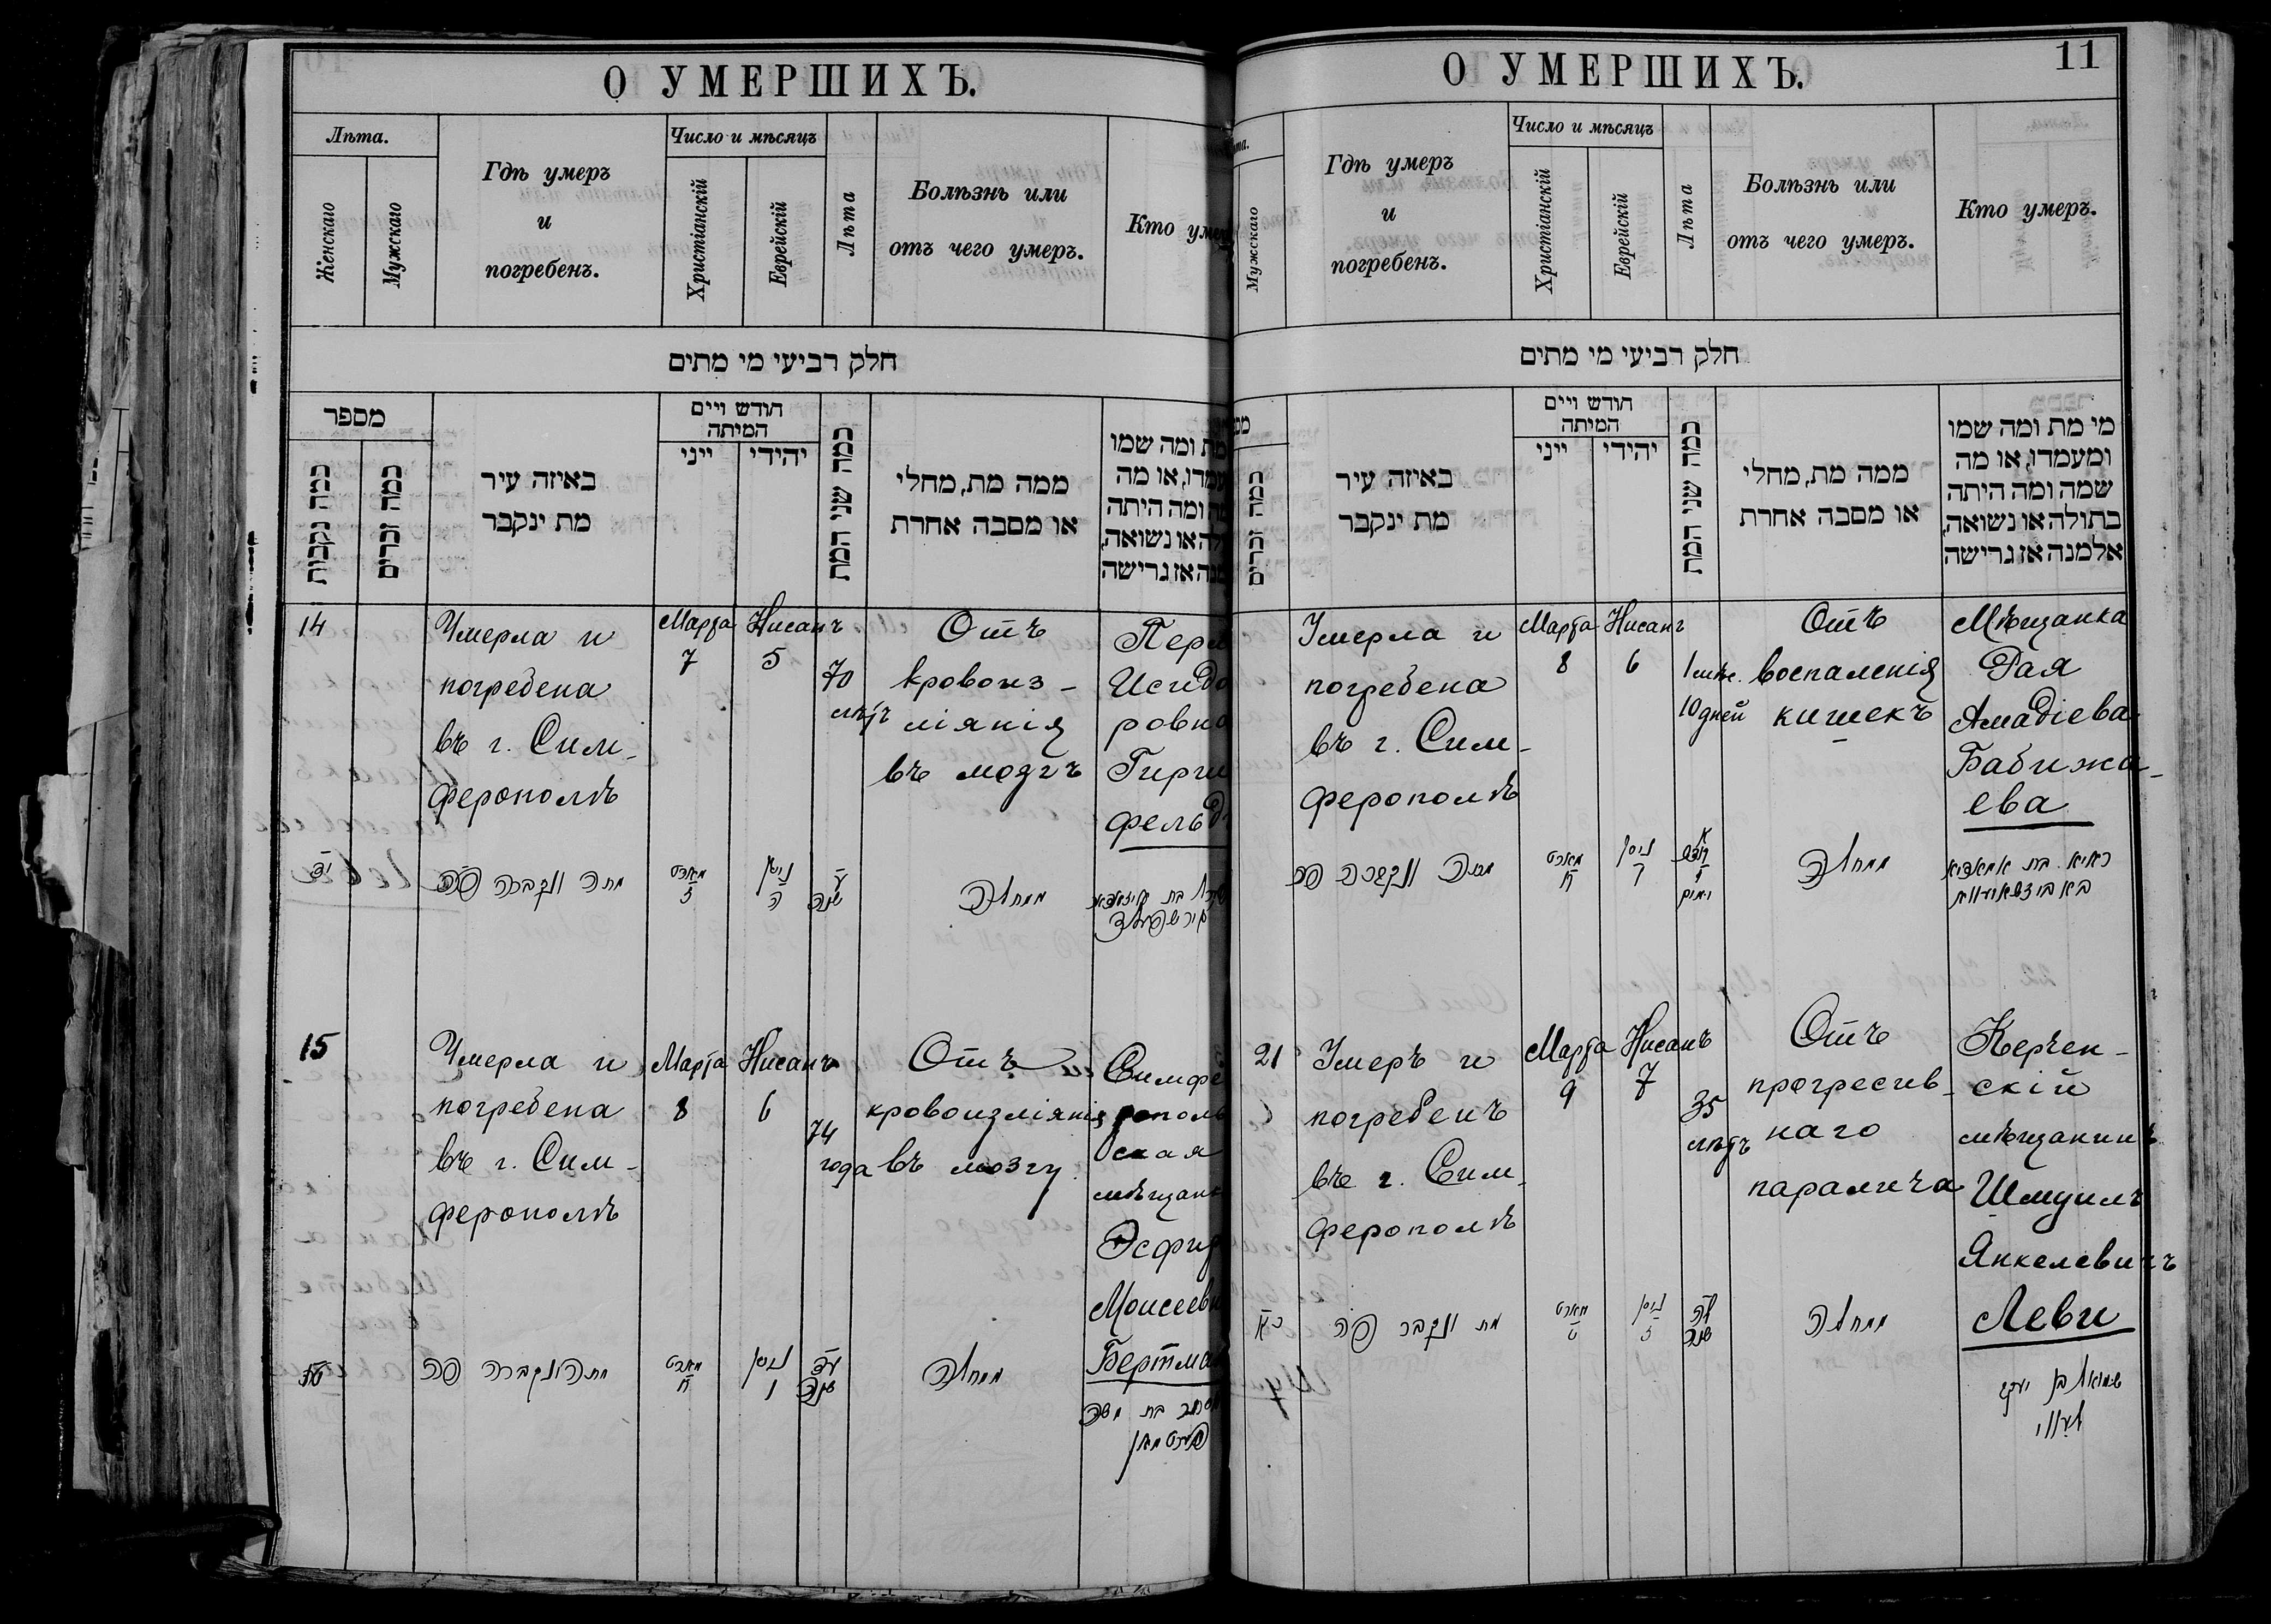 О УМЕРШИХЪ.
Лѣта.
Женскаго
Мужскаго
Гдѣ умеръ
и
погребенъ.
Число и мѣсяцъ
Христіанскій
Еврейскій
Лѣта
Болѣзнь или
отъ чего умеръ.
Кто умер
חלק רביעי מי מתים
מספר
כמה נקבות
כמה זכרים
באיזה עיר
מת ינקבר
חודש ויים
המיתה
ייני
יהידי
כמה שני המת
ממה מת, מחלי
או מסבה אחרת
מת ומה שמו
עמדו, או מה
ומה היתה
לה או נשואה,
מנה אז גרישה
14
Умерла и
погребена
въ г. Сим-
ферополѣ
Марта
7
Нисанъ
5
70
лѣтъ
Отъ
кровоиз-
ліянія
въ мозгъ
Исидо
ровна
фельд
יד
מתה ונקברה פה
מארט
ז
ניסן
ה
ע
שנה
ממחלה
15
Умерла и
погребена
въ г. Сим-
ферополѣ
Марта
8
Нисанъ
6
74
года
Отъ
кровоизліянія
въ мозгу.
Симфе
рополь
ская
мѣщанк
Эсфир
Моисеевн
Бертма
טו
מתה ונקברה פה
מארט
ח
ניסן
ו
עד
שנה
ממחלה
אסתר בת משה
בערטמאן
О УМЕРШИХЪ.
11
Мужскаго
Гдѣ умеръ
и
погребенъ.
Число и мѣсяцъ
Христіанскій
Еврейскій
Лѣта
Болѣзнь или
отъ чего умеръ.
Кто умеръ.
חלק רביעי מי מתים
כמה זכרים
באיזה עיר
מת ינקבר
חודש ויים
המיתה
ייני
יהידי
כמה שני המת
ממה מת, מחלי
או מסבה אחרת
מי מת ומה שמו
ומעמדו, או מה
שמה ומה היתה
בתולה או נשואה,
אלמנה אז גרישה
Умерла и
погребена
въ г. Сим-
ферополѣ
Марта
8
Нисанъ
6
1 мѣс.
10 дней
Отъ
воспаленія
кишекъ
Мѣщанка
Рая
Амадіева
Бабижа-
ева
מתה ונקברה פה
מארט
ח
ניסן
ו
א
חדש
י
ימים
ממחלה
ראיא בת אמאדיא
21
Умеръ и
погребенъ
въ г. Сим-
ферополѣ
Марта
9
Нисанъ
7
35
лѣтъ
Отъ
прогресив-
наго
паралича
Керчен-
скій
мѣщанинъ
Шмуилъ
Янкелевичъ
Леви
כא
מת ונקבר פה
מארט
ט
ניסן
ז
לה
שנה
ממחלה
שמואל בן יעקב
לעווי